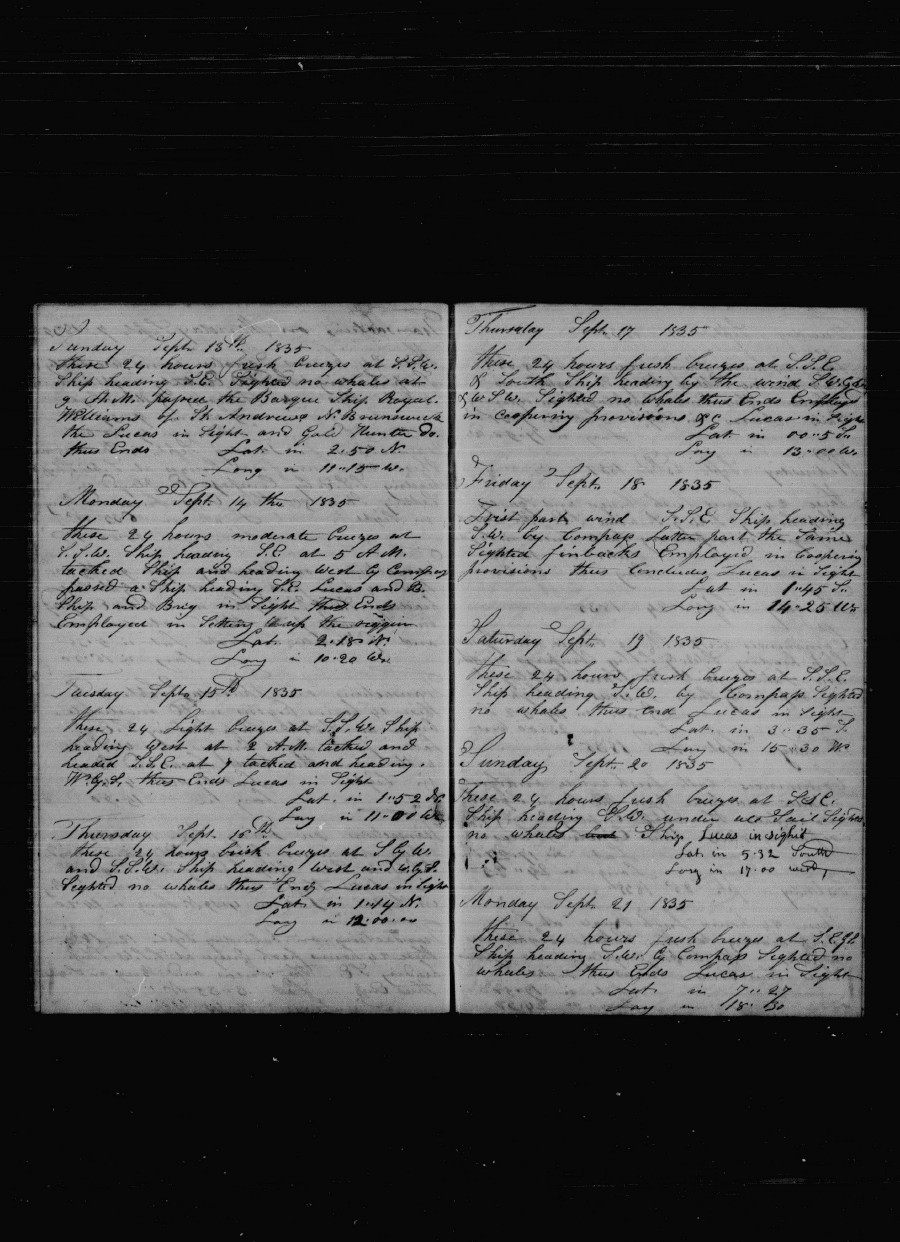 Sunday Sept. 13th 1835
these 24 hours fresh breezes at S.S.W.
Ship heading S.E. Sighted no whales at
9 A.M. passed the Barque Ship Royal.
Williams of St Andrews N. Brunswick
the Lucas in Sight and Gold Hunter Do.
thus Ends Lat. in 2"50 N.
Long in 11"15 W.
Monday Sept. 14 th 1835
these 24 hours moderate breezes at
S.S.W. Ship heading S.E. at 5 A.M.
tacked Ship and heading West by Compass
passed a Ship heading S.E. Lucas and B.
Ship and Brig in Sight thus Ends
Employed in Setting up the riggin
Lat. 2"18 N.
Long in 10"20 W.
Tuesday Sept. 15th 1835
these 24 Light breezes at S.S.W. Ship
heading West at 2 A.M. tacked and
headed S.S.E. at 7 tacked and heading.
W.by.S. thus Ends Lucas in Sight
Lat. in 1"52 N.
Long in 11"00 W.
Thursday Sept. 15th
these 24 hours brisk breezes at S by W.
and S.S.W. Ship heading West and W.by.S.
Sighted no whales thus Ends Lucas in Sight
Lat. in 1"14 N.
Long in 12"00"00
Thursday Sept. 17 1835
these 24 hours fresh breezes at S.S.E.
& South Ship heading by the wind S.W.
& W.S.W. Sighted no whales thus Ends Employed
in Coopering provisions &c Lucas in Sight
Lat in 00"5 S.
Long in 13"00 W.
Friday Sept. 18 1835
First part wind S.S.E. Ship heading
S.W. by Compass Latter part the Same
Sighted finbacks Employed in Coopering
provisions thus Concludes Lucas in Sight
Lat in 1"45 S.
Long in 14"25 W.
Saturday Sept. 19 1835
these 24 hours fresh breezes at S.S.E.
Ship heading S.W. by Compass Sighted
no whales thus End Lucas in Sight
Lat. in 3"35 S.
Long in 15"30 W.
Sunday Sept. 20 1835
These 24 hours fresh breezes at S.S.E.
Ship heading S.W. under all Sail Sighted
no whales Ship Lucas in sight
Lat. in 5"32 South
Long in 17"00 west
Monday Sept. 21 1835
these 24 hours fresh breezes at
Ship heading S.W. by Compass Sighted no
whales thus Ends Lucas in Sight
Lat. in 7"27
Long in 18"30